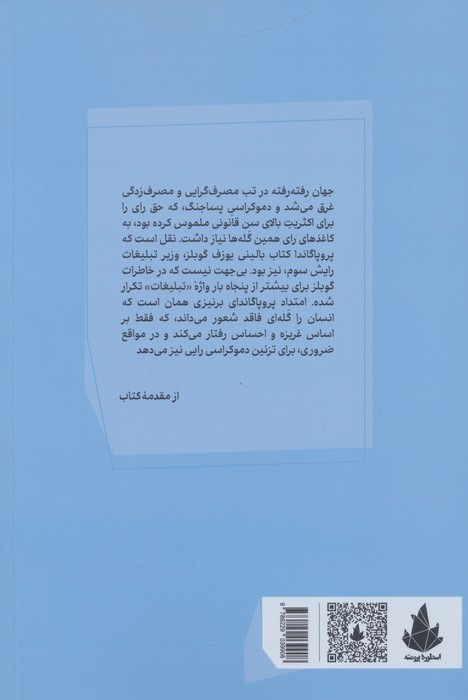 جهان رفته‌رفته در تب مصرف‌گرایی و مصرف‌زدگی
غرق می‌شد و دموکراسی پساجنگ، که حق رای را
برای اکثریتِ بالای سن قانونی ملموس کرده بود، به
کاغذهای رای همین گله‌ها نیاز داشت. نقل است که
پروپاگاندا کتاب بالینی یوزف گوبلز، وزیر تبلیغات
رایش سوم، نیز بود. بی‌جهت نیست که در خاطرات
گوبلز برای بیشتر از پنجاه بار واژهٔ «تبلیغات» تکرار
شده. امتداد پروپاگاندای برنیزی همان است که
انسان را گله‌ای فاقد شعور می‌داند، که فقط بر
اساس غریزه و احساس رفتار می‌کند و در مواقع
ضروری، برای تزئین دموکراسی رایی نیز می‌دهد
از مقدمهٔ کتاب
اسطورهٔ پرومته